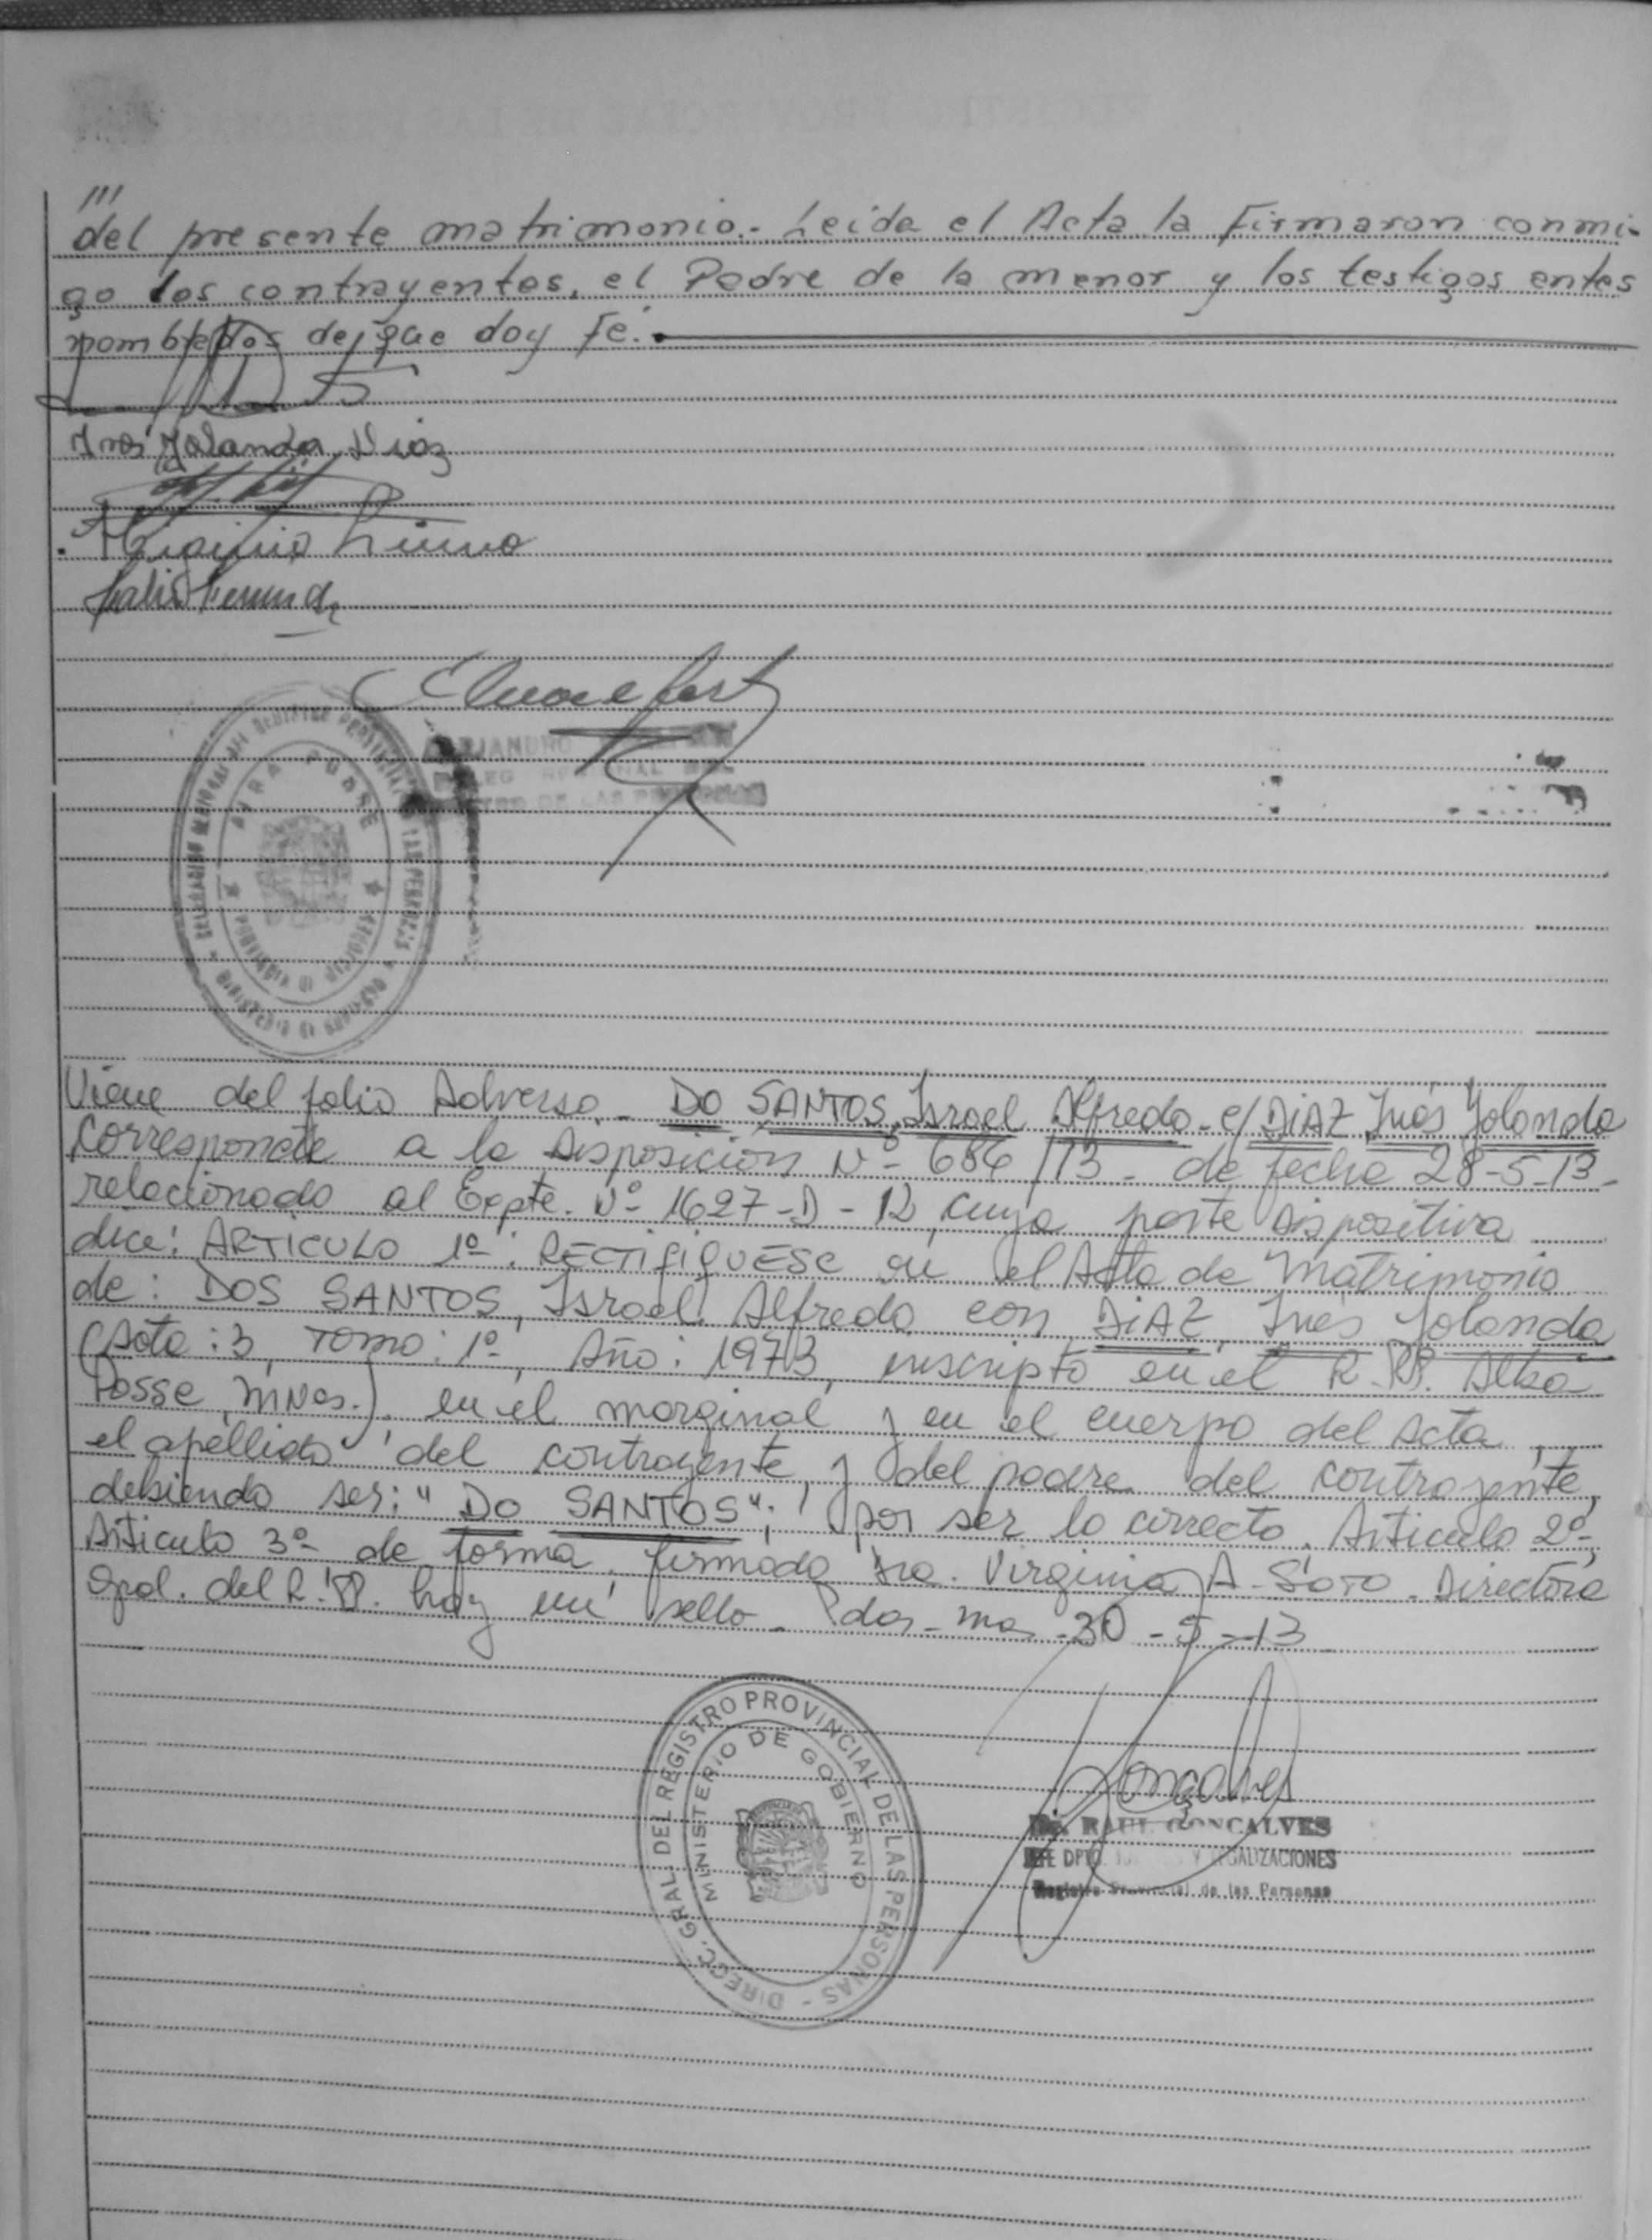 ///
del presente matrimonio.- Leida el Acta la Firmaron conmi-
go los contrayentes, el Padre de la menor y los testigos antes
nombrados de que doy Fe.-
Ines Yolanda Diaz
Higinio
ALEJANDRO
DELEG REGIONAL DEL
REGISTRO DE LAS PERSONAS
ALBA POSSE
PROVINCIA DE MISIONES
MINISTERIO DE GOBIERNO
Viene del folio Adverso - DO SANTOS, Israel Alfredo - c/ DiAZ Inés Yolanda
Corresponde a la Disposición Nº- 686/13 - de fecha 28-5-13-
relacionado al Expte. Nº 1627-D-12, cuya parte Dispositiva
dice: ARTICULO 1º: RECTIFIQUESE en el Acta de Matrimonio
de: DOS SANTOS, Israel Alfredo con DiAZ, Inés Yolanda
(Acta: 3, Tomo: 1º, Año: 1973, inscripto en el R.PP. Alba
Posse, MNes.), en el marginal y en el cuerpo del Acta,
el apellido del contrayente, y del padre del contrayente,
debiendo ser: "DO SANTOS"; por ser lo correcto. Articulo 2º-,
Articulo 3º- de forma, firmado Dra. Virginia A. SOTO - Directora
Gral. del R.PP. hay un sello - Pdas - Mnes - 30 - 5 - 13
DIREC. GRAL. DEL REGISTRO PROVINCIAL DE LAS PERSONAS -
MINISTERIO DE GOBIERNO
Gonçalves
Dr. RAUL GONCALVES
JEFE DPTO. Y LEGALIZACIONES
Registro Provincial de las Personas